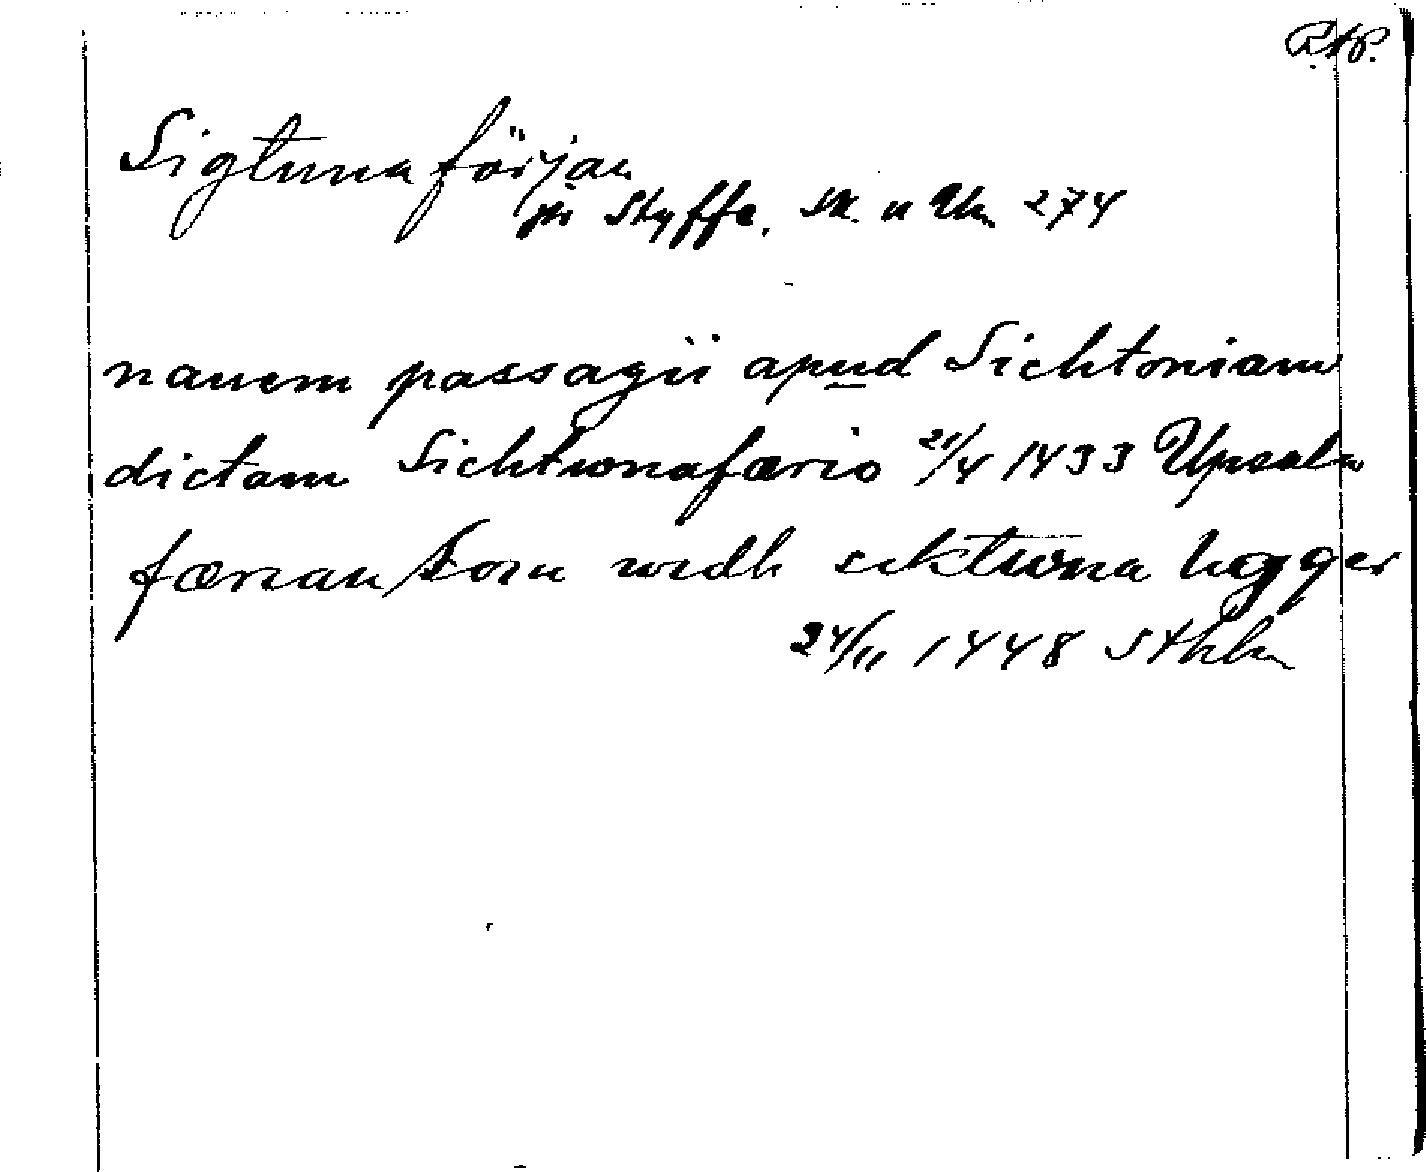 R.A.P.
Sigtuna förjan
jfr Styffe, Sk. u Un. 274
nauem passagii apud Sichtoniam
dictam Sichtwnafærio 21/4 1433 Upsala
færean som widh siktwna ligger
24/11 1448 Sthlm